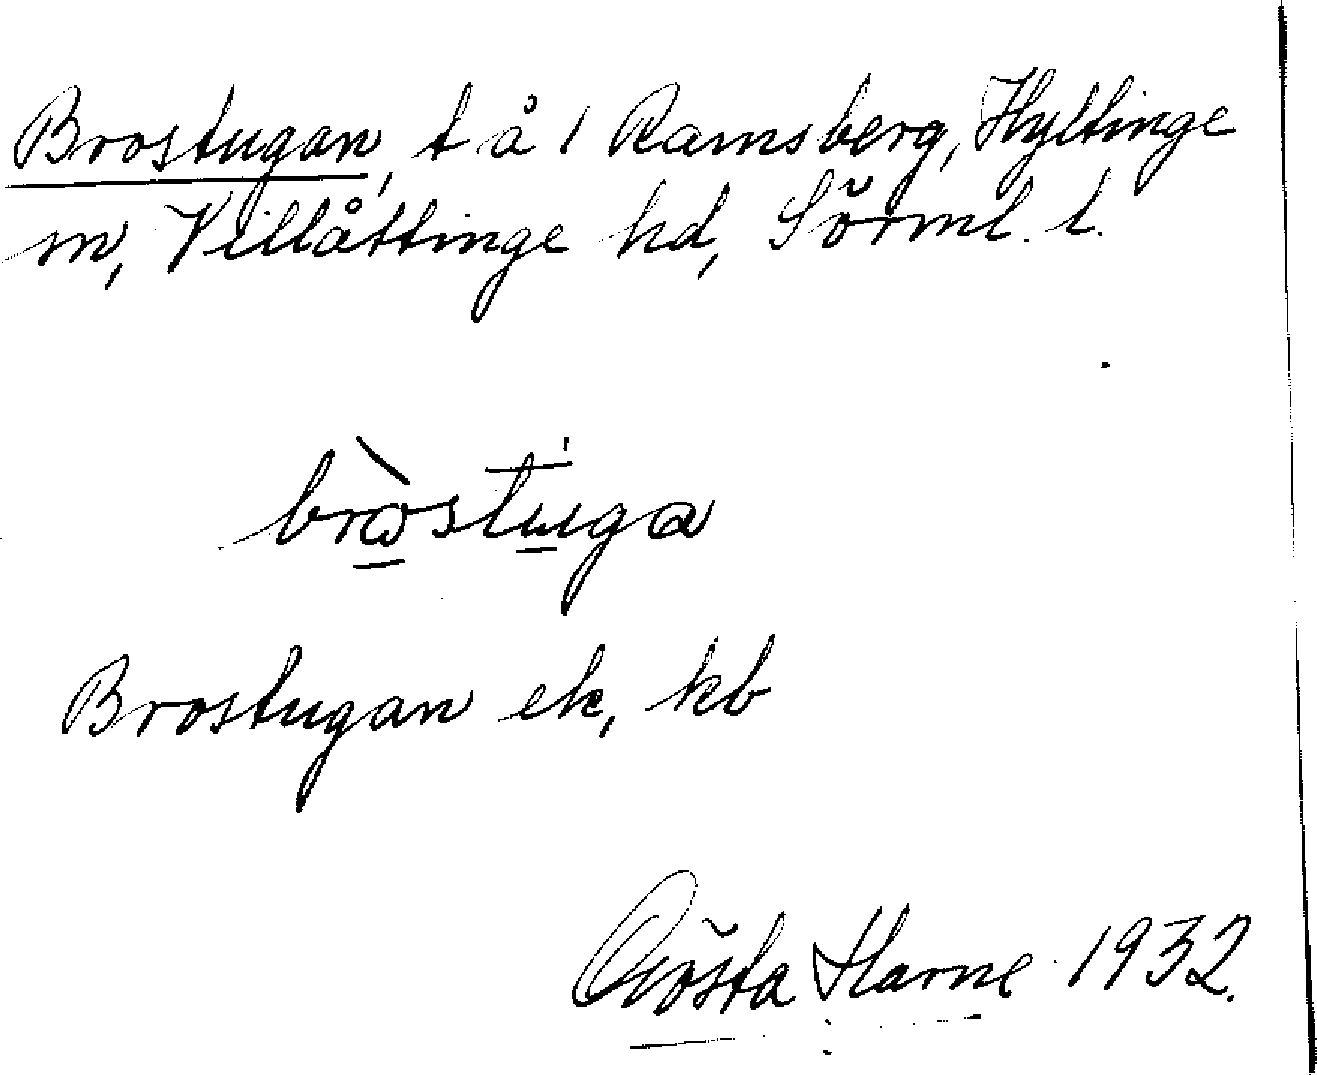 Brostugan, t å 1 Ramsberg, Hyltinge
sn, Villåttinge hd, Sörml. l.
bròstuga
Brostugan ek, kb
Gösta Harne 1932.